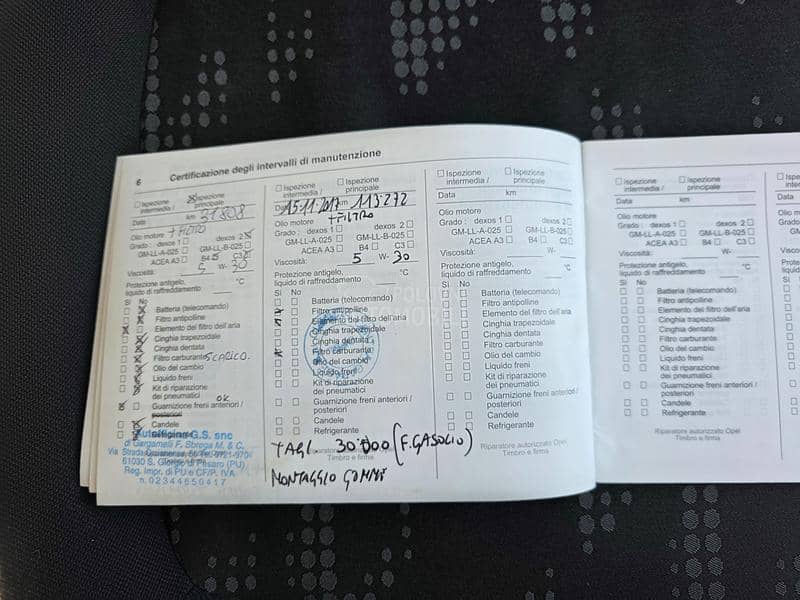 6 Certificazione degli intervalli di manutenzione
Ispezione intermedia /
Ispezione principale
Data km 31808
Olio motore + FILTRO
Grado: dexos 1 dexos 2
GM-LL-A-025 GM-LL-B-025
ACEA A3 B4 C3
Viscosità: 5 W- 30
Protezione antigelo,
liquido di raffreddamento °C
Sì No
Batteria (telecomando)
Filtro antipolline
Elemento del filtro dell'aria
Cinghia trapezoidale
Cinghia dentata
Filtro carburante SCARICO.
Olio del cambio
Liquido freni
Kit di riparazione
dei pneumatici OK
Guarnizione freni anteriori /
posteriori
Candele
Autofficina G.S. snc
di Gargamelli F. Sbrega M. & C.
61030 S. Giorgio di Pesaro (PU)
Reg. Impr. di PU e CF/P. IVA
n. 02344650417
Ispezione intermedia /
Ispezione principale
Data 15.11.2017 km 113272
Olio motore + FILTRO
Grado: dexos 1 dexos 2
GM-LL-A-025 GM-LL-B-025
ACEA A3 B4 C3
Viscosità: 5 W- 30
Protezione antigelo,
liquido di raffreddamento °C
Sì No
Batteria (telecomando)
Filtro antipolline
Elemento del filtro dell'aria
Cinghia trapezoidale
Cinghia dentata
Filtro carburante
Olio del cambio
Liquido freni
Kit di riparazione
dei pneumatici
Guarnizione freni anteriori /
posteriori
Candele
Refrigerante
TAGL 30.000 (F. GASOLIO)
Timbro e firma
MONTAGGIO GOMME
Ispezione intermedia /
Ispezione principale
Data km
Olio motore
Grado: dexos 1 dexos 2
GM-LL-A-025 GM-LL-B-025
ACEA A3 B4 C3
Viscosità: W-
Protezione antigelo,
liquido di raffreddamento °C
Sì No
Batteria (telecomando)
Filtro antipolline
Elemento del filtro dell'aria
Cinghia trapezoidale
Cinghia dentata
Filtro carburante
Olio del cambio
Liquido freni
Kit di riparazione
dei pneumatici
Guarnizione freni anteriori /
posteriori
Candele
Refrigerante
Riparatore autorizzato Opel
Timbro e firma
Ispezione intermedia /
Ispezione principale
Data km
Olio motore
Grado: dexos 1 dexos 2
GM-LL-A-025 GM-LL-B-025
ACEA A3 B4 C3
Viscosità: W-
Protezione antigelo,
liquido di raffreddamento °C
Sì No
Batteria (telecomando)
Filtro antipolline
Elemento del filtro dell'aria
Cinghia trapezoidale
Cinghia dentata
Filtro carburante
Olio del cambio
Liquido freni
Kit di riparazione
dei pneumatici
Guarnizione freni anteriori /
posteriori
Candele
Refrigerante
Riparatore autorizzato Opel
Timbro e firma